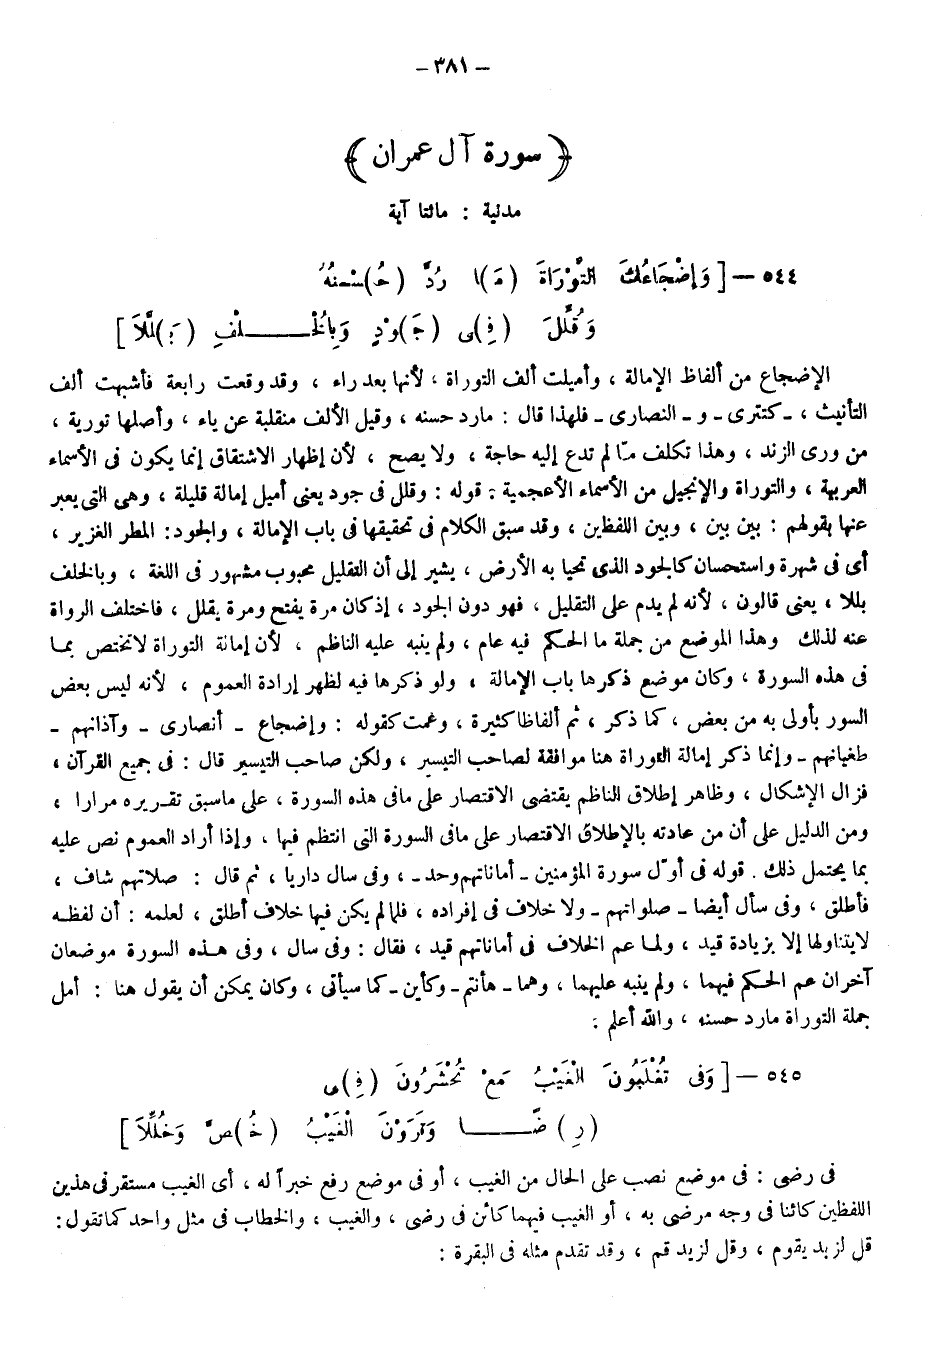 – ٣٨١ –
﴿ سورة آل عمران ﴾
مدنية : مائتا آية
٥٤٤ – [ وَإِضْجَاعُكَ التَّوْرَاةَ (مَـ)ا رُدَّ (حُـ)سْنُهُ
وَقُلِّلَ (فِـ)ى (جَـ)وْدٍ وَبِالْخُلْفِ (بَـ)لَّلاَ ]
الإضجاع من ألفاظ الإمالة ، وأميلت ألف التوراة ، لأنها بعد راء ، وقد وقعت رابعة فأشبهت ألف
التأنيث ، ـ كتترى ـ و ـ النصارى ـ فلهذا قال : مارد حسنه ، وقيل الألف منقلبة عن ياء ، وأصلها تورية ،
من ورى الزند ، وهذا تكلف ممّا لم تدع إليه حاجة ، ولا يصح ، لأن إظهار الاشتقاق إنما يكون فى الأسماء
العربية ، والتوراة والإنجيل من الأسماء الأعجمية : قوله : وقلل فى جود يعنى أميل إمالة قليلة ، وهى التى يعبر
عنها بقولهم : بين بين ، وبين اللفظين ، وقد سبق الكلام فى تحقيقها فى باب الإمالة ، والجود : المطر الغزير ،
أى فى شهرة واستحسان كالجود الذى تحيا به الأرض ، يشير إلى أن التقليل محبوب مشهور فى اللغة ، وبالخلف
بللا ، يعنى قالون ، لأنه لم يدم على التقليل ، فهو دون الجود ، إذ كان مرة يفتح ومرة يقلل ، فاختلف الرواة
عنه لذلك وهذا الموضع من جملة ما الحكم فيه عام ، ولم ينبه عليه الناظم ، لأن إمالة التوراة لا تختص بما
فى هذه السورة ، وكان موضع ذكرها باب الإمالة ، ولو ذكرها فيه لظهر إرادة العموم ، لأنه ليس بعض
السور بأولى به من بعض ، كما ذكر ، ثم ألفاظا كثيرة ، وعمت كقوله : وإضجاع ـ أنصارى ـ وآذانهم ـ
طغيانهم ـ وإنما ذكر إمالة التوراة هنا موافقة لصاحب التيسير ، ولكن صاحب التيسير قال : فى جميع القرآن ،
فزال الإشكال ، وظاهر إطلاق الناظم يقتضى الاقتصار على مافى هذه السورة ، على ماسبق تقريره مرارا ،
ومن الدليل على أن من عادته بالإطلاق الاقتصار على مافى السورة التى انتظم فيها ، وإذا أراد العموم نص عليه
بما يحتمل ذلك . قوله فى أوّل سورة المؤمنين ـ أماناتهم وحد ـ ، وفى سال داريا ، ثم قال : صلاتهم شاف ،
فأطلق ، وفى سأل أيضا ـ صلواتهم ـ ولا خلاف فى إفراده ، فلما لم يكن فيها خلاف أطلق ، لعلمه : أن لفظه
لايتناولها إلا بزيادة قيد ، ولما عم الخلاف فى أماناتهم قيد ، فقال : وفى سال ، وفى هذه السورة موضعان
آخران عم الحكم فيهما ، ولم ينبه عليهما ، وهما ـ هأنتم ـ وكأين ـ كما سيأتى ، وكان يمكن أن يقول هنا : أمل
جملة التوراة مارد حسنه ، والله أعلم :
٥٤٥ – [ وَفى تُغْلَبُونَ الْغَيْبُ مَعْ تُحْشَرُونَ (فِـ)ى
(رِ) ضًـا وَتَرَوْنَ الْغَيْبُ (خُـ)صَّ وَخُلِّلاَ ]
فى رضى : فى موضع نصب على الحال من الغيب ، أو فى موضع رفع خبرا له ، أى الغيب مستقر فى هذين
اللفظين كائنا فى وجه مرضى به ، أو الغيب فيهما كائن فى رضى ، والغيب ، والخطاب فى مثل واحد كما تقول :
قل لزيد يقوم ، وقل لزيد قم ، وقد تقدم مثله فى البقرة :